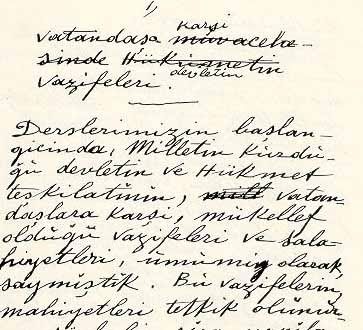 1/
karşi
vatandaşa müvacehe-
sinde Hükümetin
devletin
vazifeleri.
Derslerimizin başlan-
gicinda, Milletin kürdü-
ğü devletin ve Hükmet
teşkilatinin, mill vatan-
daşlara karşi, mükellef
oldüğü vazifeleri ve sala-
hiyetleri, ümümiy olarak
saymiştik. Bü vazifelerin,
mahiyetleri tetkik olünür-